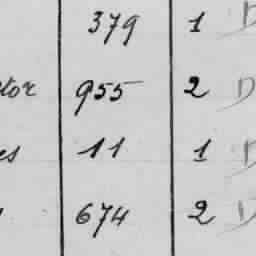 379 1 D
ctor 955 2 D
es 11 1 D
674 2 D